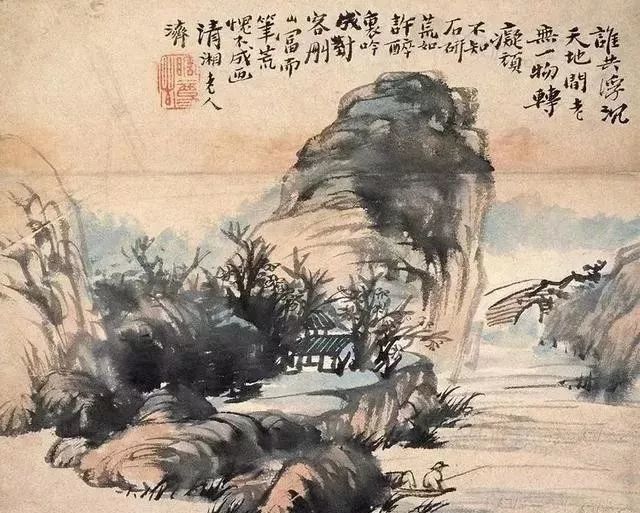 誰共浮沉
天地間老
無一物轉
癡頑
不知
石研
荒如
許醉
裏吟
成對
客刪
山而
筆荒
愧不成画
清湘老人
濟